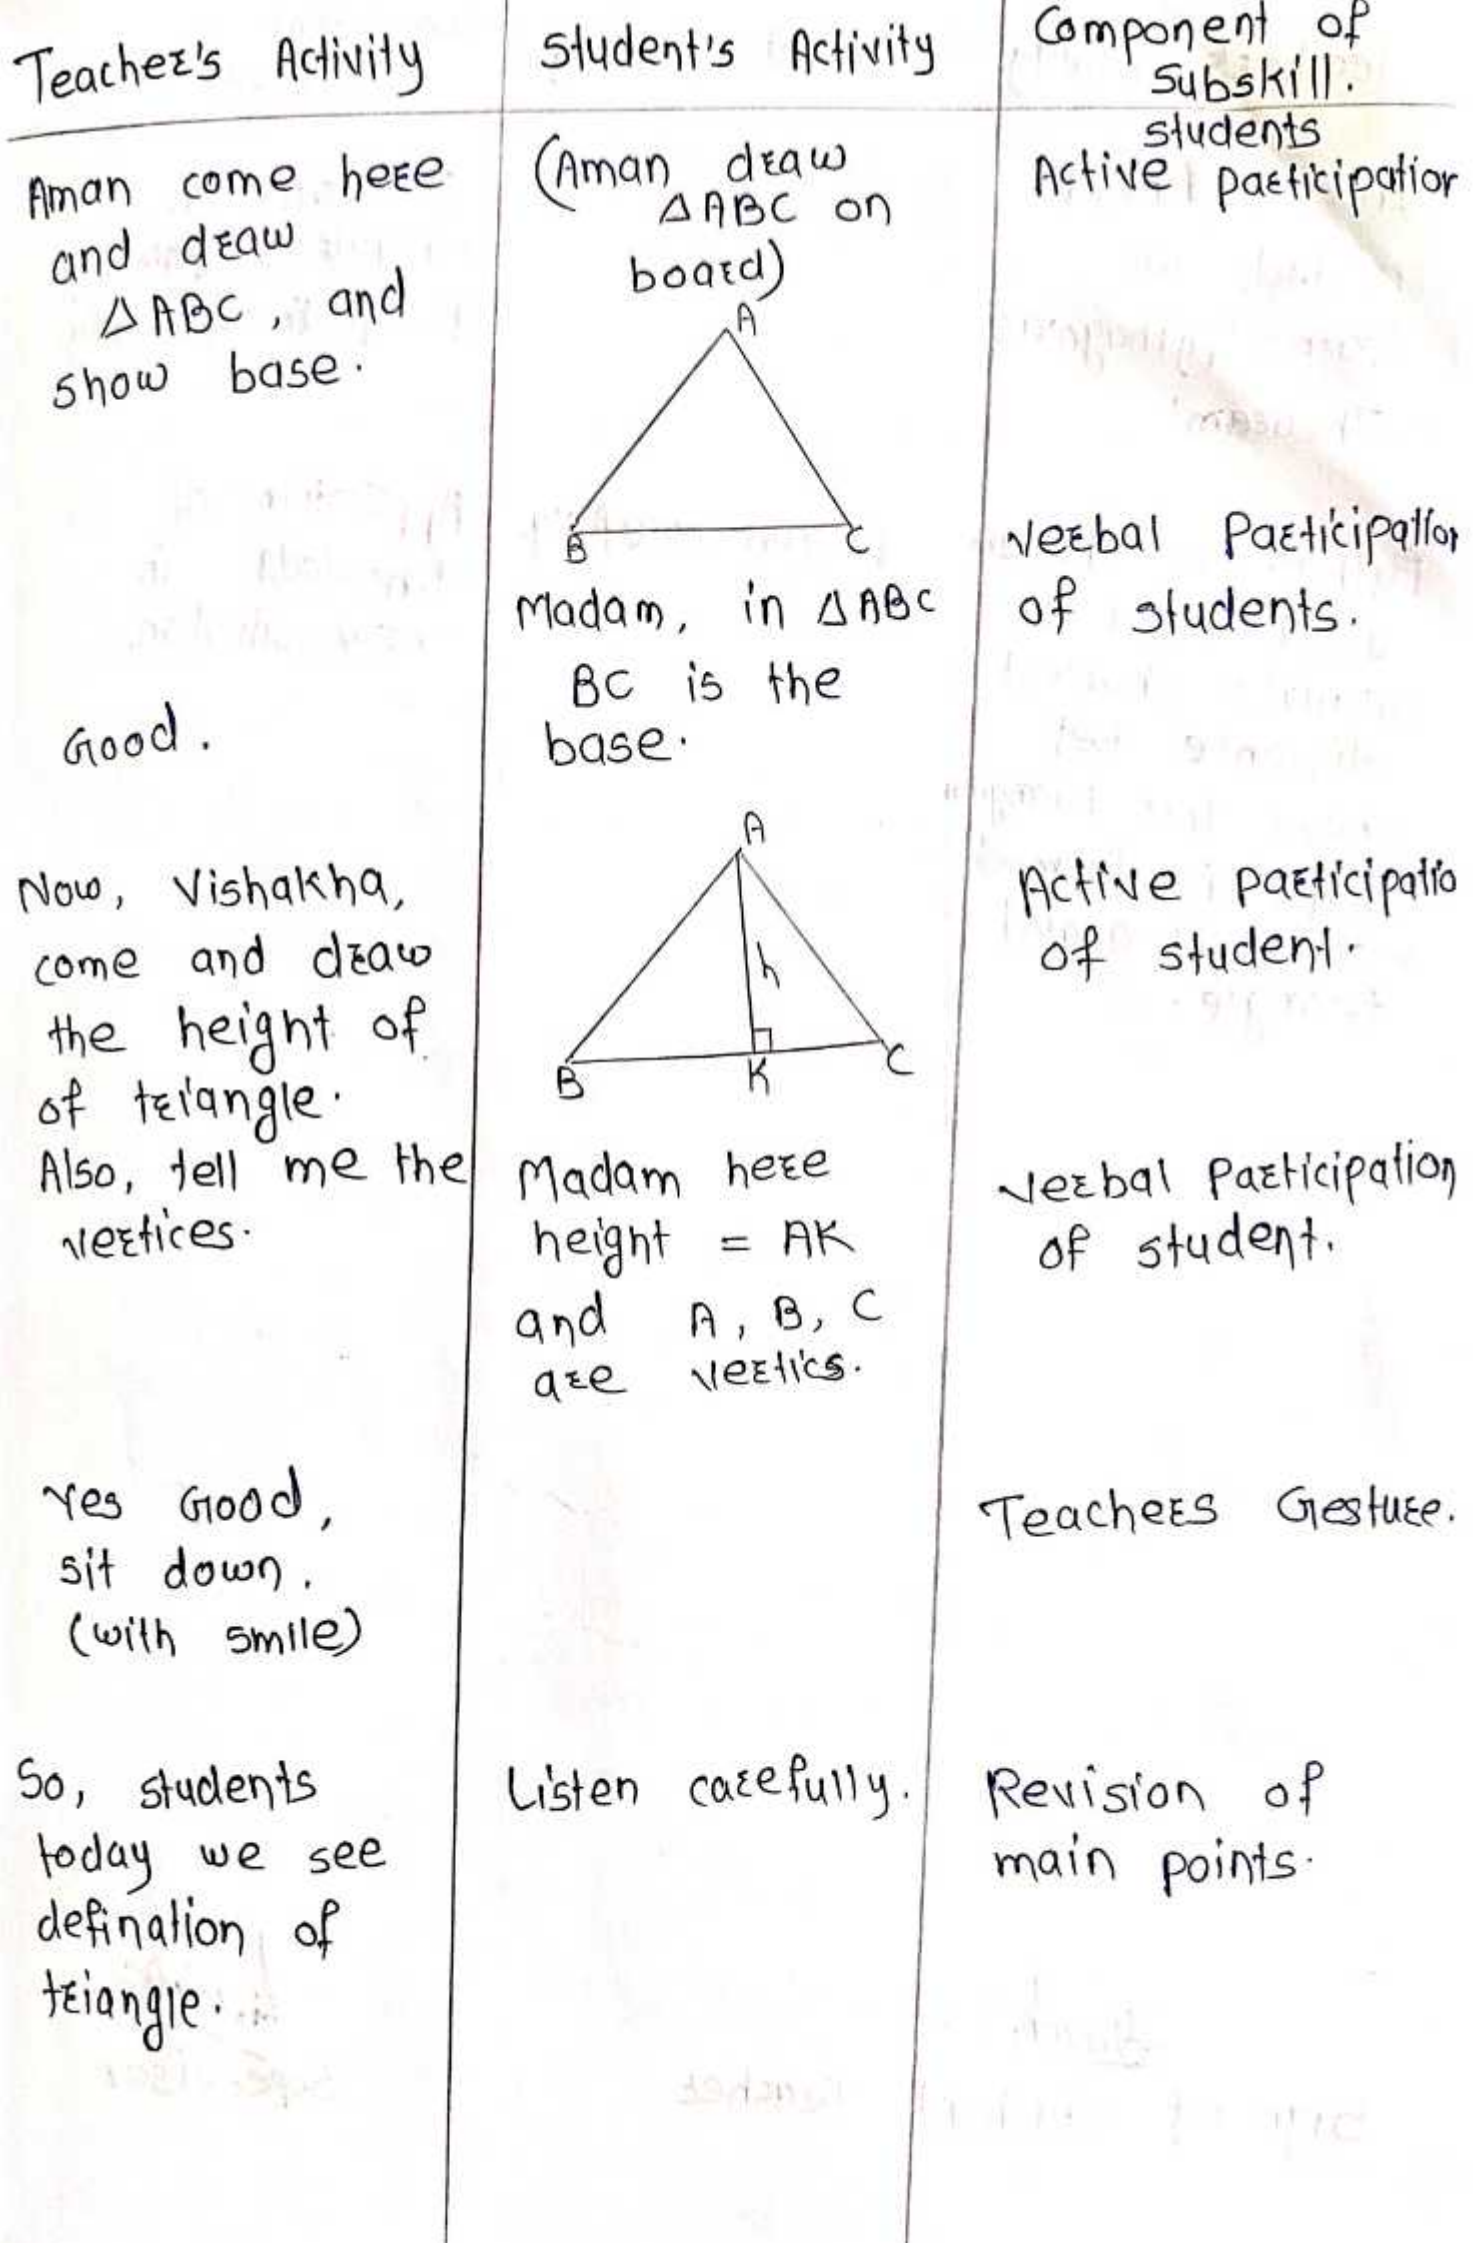 Teacher's Activity
Student's Activity
Component of
Subskill.
Aman come here
and draw
△ABC, and
show base.
(Aman draw
△ABC on
board)
students
Active participation
A
B
C
Madam, in △ABC
BC is the
base.
Verbal Participation
of students.
Good.
Now, Vishakha,
come and draw
the height of
of triangle.
Also, tell me the
vertices.
A
h
B
K
C
Madam here
height = AK
and A, B, C
are vertics.
Active participatio
of student.
Verbal Participation
of student.
Yes Good,
sit down.
(with smile)
Teachers Gesture.
So, students
today we see
defination of
triangle.
Listen carefully.
Revision of
main points.